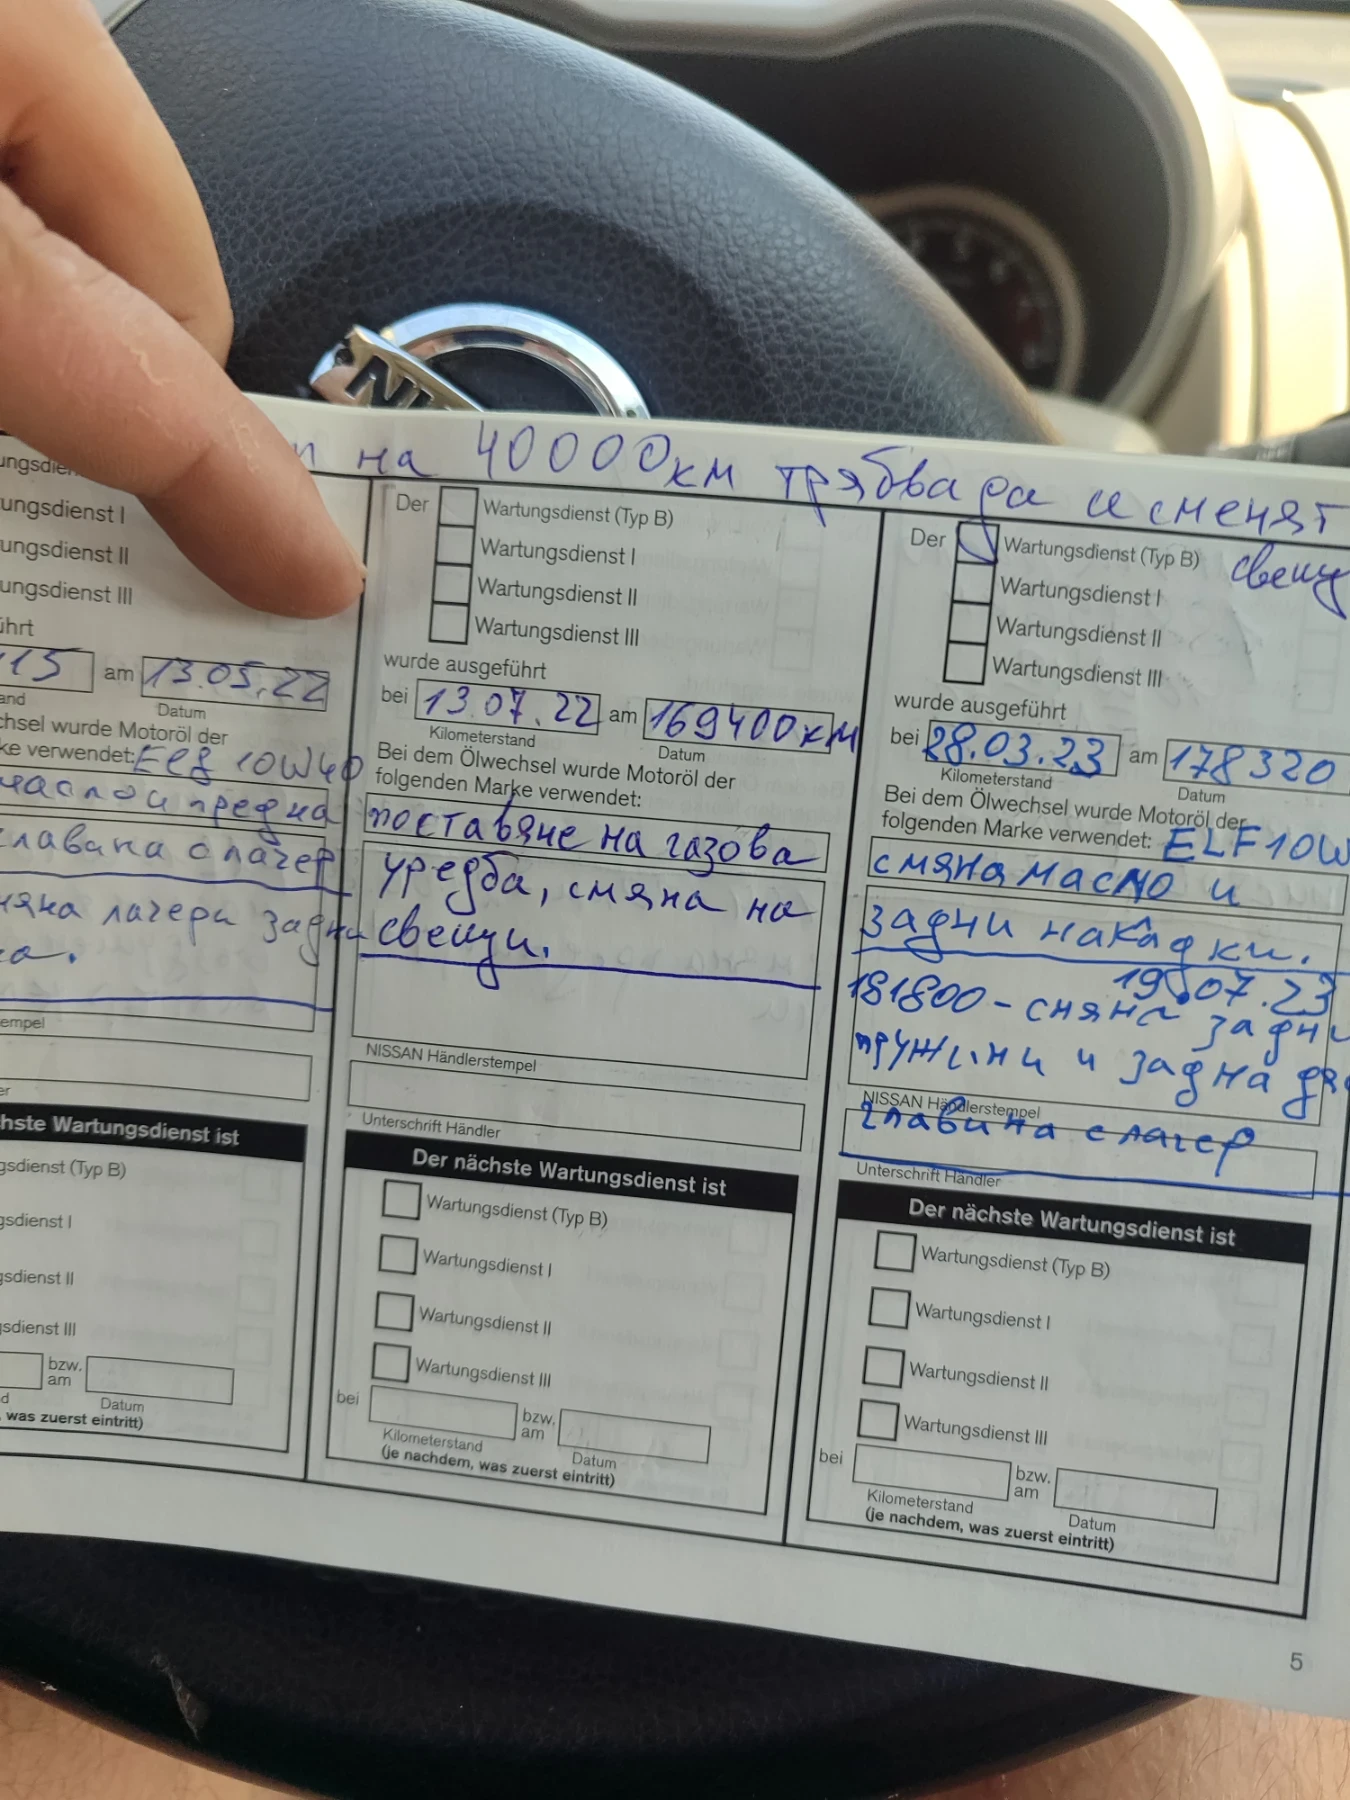 на 40000км трябва да и сменят
свещи
ungsdienst I
ungsdienst II
ungsdienst III
ührt
15 am 13.05.22
and Datum
chsel wurde Motoröl der
ke verwendet: Elf 10W40
масло и предна
главина с лагер
мяна лагери задни
ка.
tempel
er
hste Wartungsdienst ist
gsdienst (Typ B)
gsdienst I
gsdienst II
gsdienst III
bzw.
am
d Datum
, was zuerst eintritt)
Der Wartungsdienst (Typ B)
Wartungsdienst I
Wartungsdienst II
Wartungsdienst III
wurde ausgeführt
bei 13.07.22 am 169400км
Kilometerstand Datum
Bei dem Ölwechsel wurde Motoröl der
folgenden Marke verwendet:
поставяне на газова
уредба, смяна на
свещи.
NISSAN Händlerstempel
Unterschrift Händler
Der nächste Wartungsdienst ist
Wartungsdienst (Typ B)
Wartungsdienst I
Wartungsdienst II
Wartungsdienst III
bei bzw.
am
Kilometerstand Datum
(je nachdem, was zuerst eintritt)
Der Wartungsdienst (Typ B)
Wartungsdienst I
Wartungsdienst II
Wartungsdienst III
wurde ausgeführt
bei 28.03.23 am 178320
Kilometerstand Datum
Bei dem Ölwechsel wurde Motoröl der
folgenden Marke verwendet: ELF 10W
смяна масло и
задни накладки.
19.07.23
181800 - смяна задни
пружини и задна дя
главина с лагер
NISSAN Händlerstempel
Unterschrift Händler
Der nächste Wartungsdienst ist
Wartungsdienst (Typ B)
Wartungsdienst I
Wartungsdienst II
Wartungsdienst III
bei bzw.
am
Kilometerstand Datum
(je nachdem, was zuerst eintritt)
5